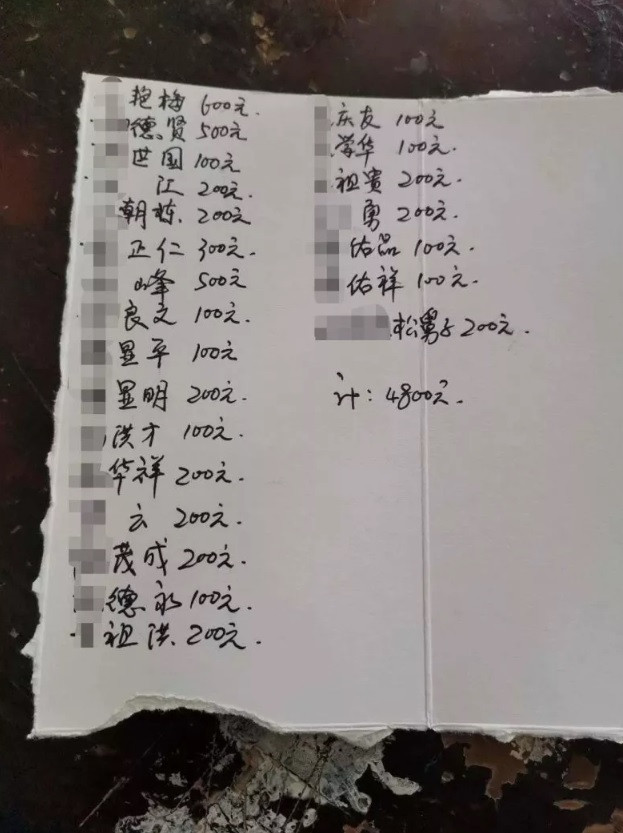 艳梅 600元.
德贤 500元
世国 100元
江 200元.
朝栋. 200元
正仁 300元.
峰 500元
良文 100元.
显平 100元
显明 200元.
洪才 100元.
华祥 200元.
云 200元.
茂成 200元.
德永 100元.
祖洪 200元.
庆友 100元
荣华 100元.
祖贵 200元.
勇 200元.
佑品 100元.
佑祥 100元.
松舅子 200元.
计: 4800元.